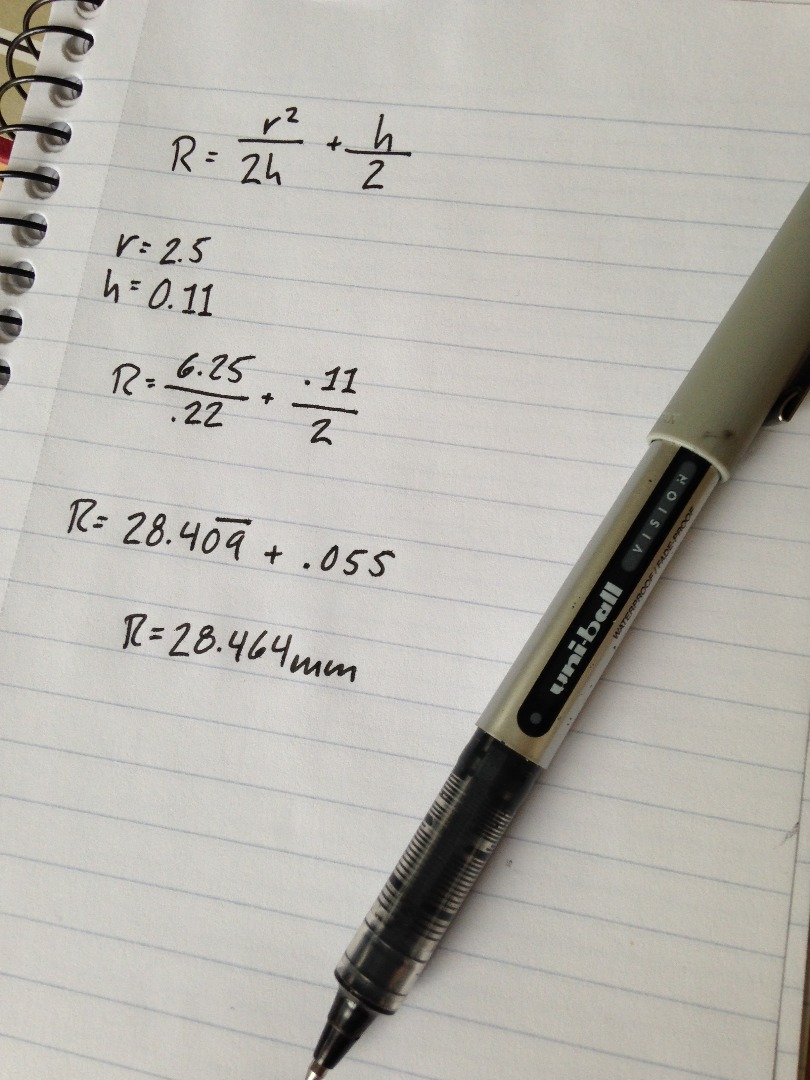 R = r²/2h + h/2
r = 2.5
h = 0.11
R = 6.25/.22 + .11/2
R = 28.40̅9̅ + .055
R = 28.464mm
uni-ball VISION
WATERPROOF / FADE-PROOF